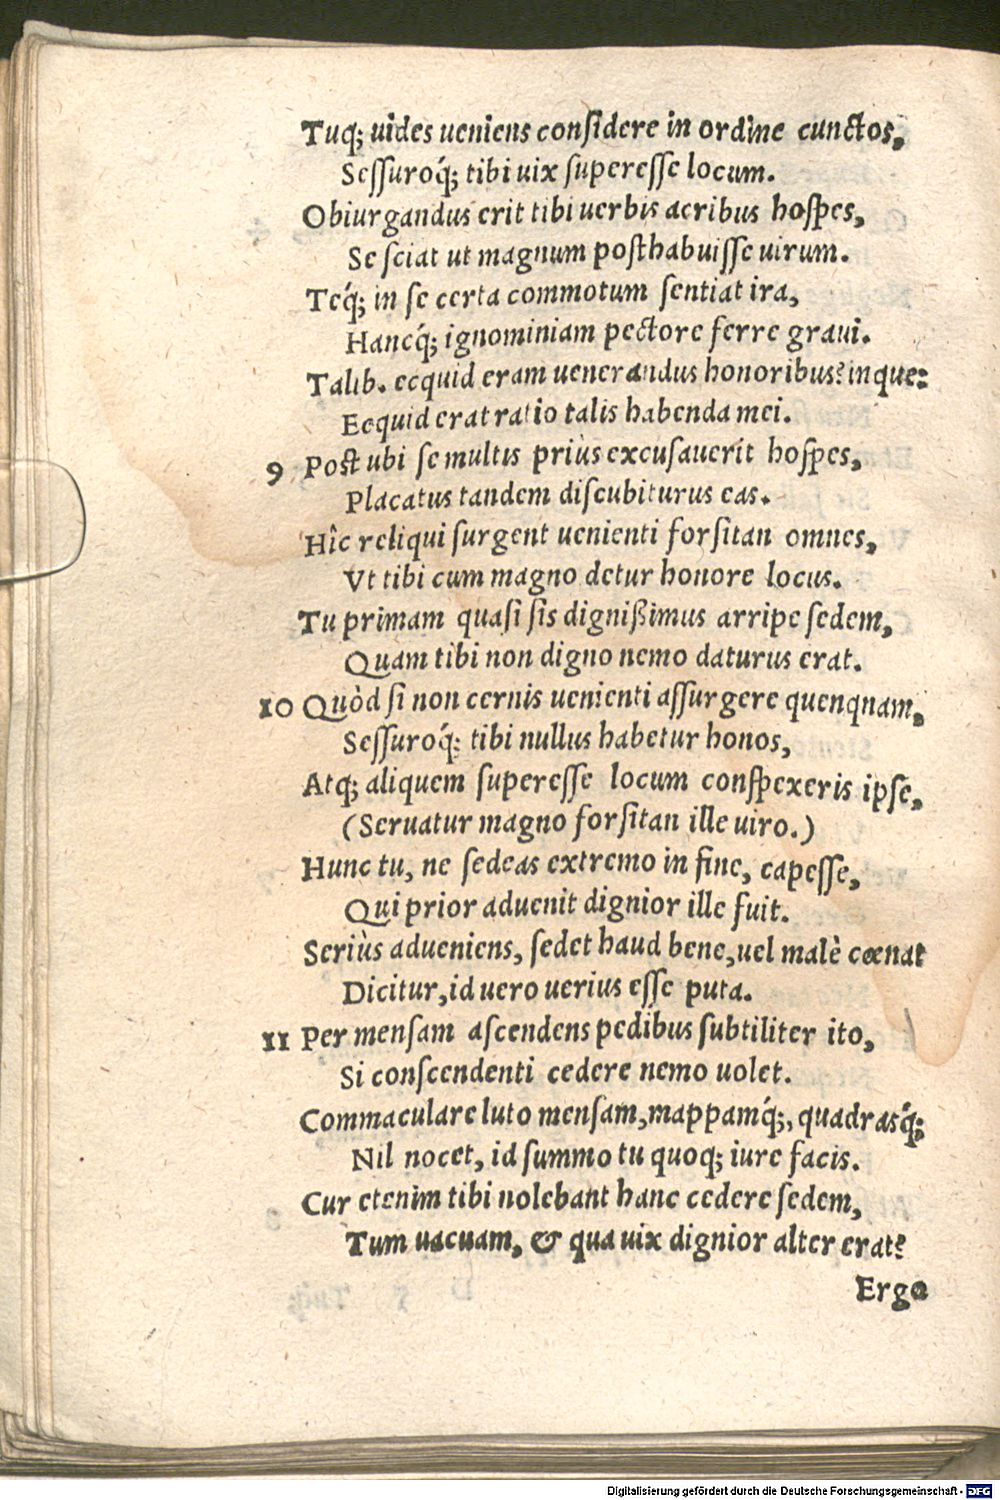 Tuq; uides ueniens considere in ordine cunctos,
Sessuroq́; tibi uix superesse locum.
Obiurgandus erit tibi uerbis acribus hospes,
Se sciat ut magnum posthabuisse uirum.
Teq́; in se certa commotum sentiat ira,
Hancq́; ignominiam pectore ferre graui.
Talib. ecquid eram uenerandus honoribus? inque:
Ecquid erat ratio talis habenda mei.
9 Post ubi se multis priùs excusauerit hospes,
Placatus tandem discubiturus eas.
Hîc reliqui surgent uenienti forsitan omnes,
Vt tibi cum magno detur honore locus.
Tu primam quasi sis dignißimus arripe sedem,
Quam tibi non digno nemo daturus erat.
10 Quòd si non cernis uenienti assurgere quenquam,
Sessuroq́; tibi nullus habetur honos,
Atq; aliquem superesse locum conspexeris ipse,
(Seruatur magno forsitan ille uiro.)
Hunc tu, ne sedeas extremo in fine, capesse,
Qui prior aduenit dignior ille fuit.
Seriùs adueniens, sedet haud bene, uel malè cœnat
Dicitur, id uero uerius esse puta.
11 Per mensam ascendens pedibus subtiliter ito,
Si conscendenti cedere nemo uolet.
Commaculare luto mensam, mappamq́;, quadrasq́;
Nil nocet, id summo tu quoq; iure facis.
Cur etenim tibi nolebant hanc cedere sedem,
Tum uacuam, & qua uix dignior alter erat?
Ergo
Digitalisierung gefördert durch die Deutsche Forschungsgemeinschaft - DFG